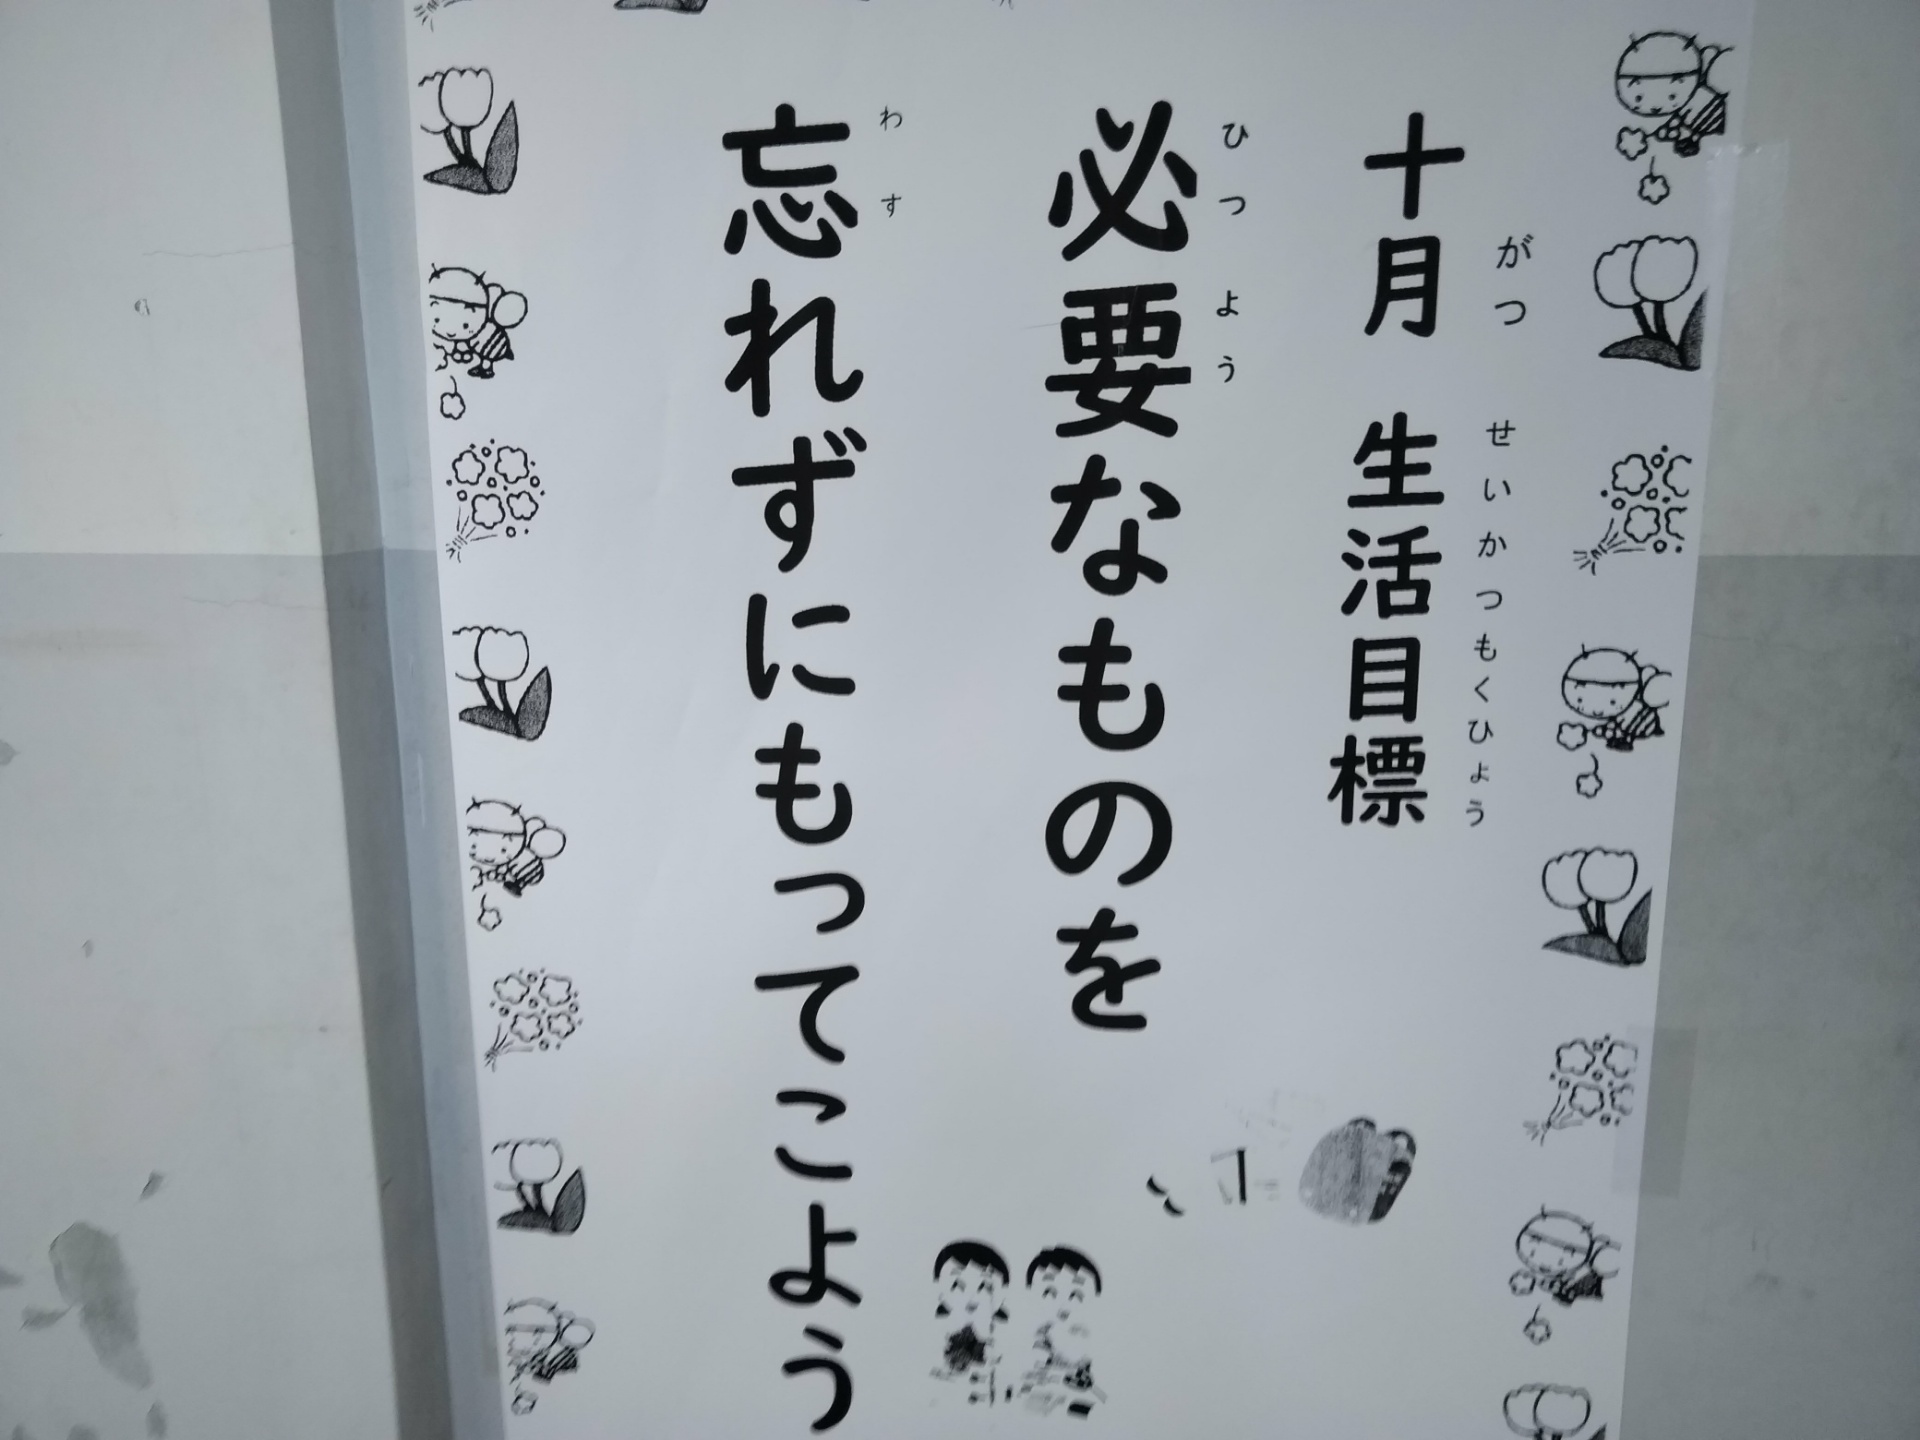 十月 生活目標
がつ せいかつもくひょう
必要なものを
ひつよう
忘れずにもってこよう
わす